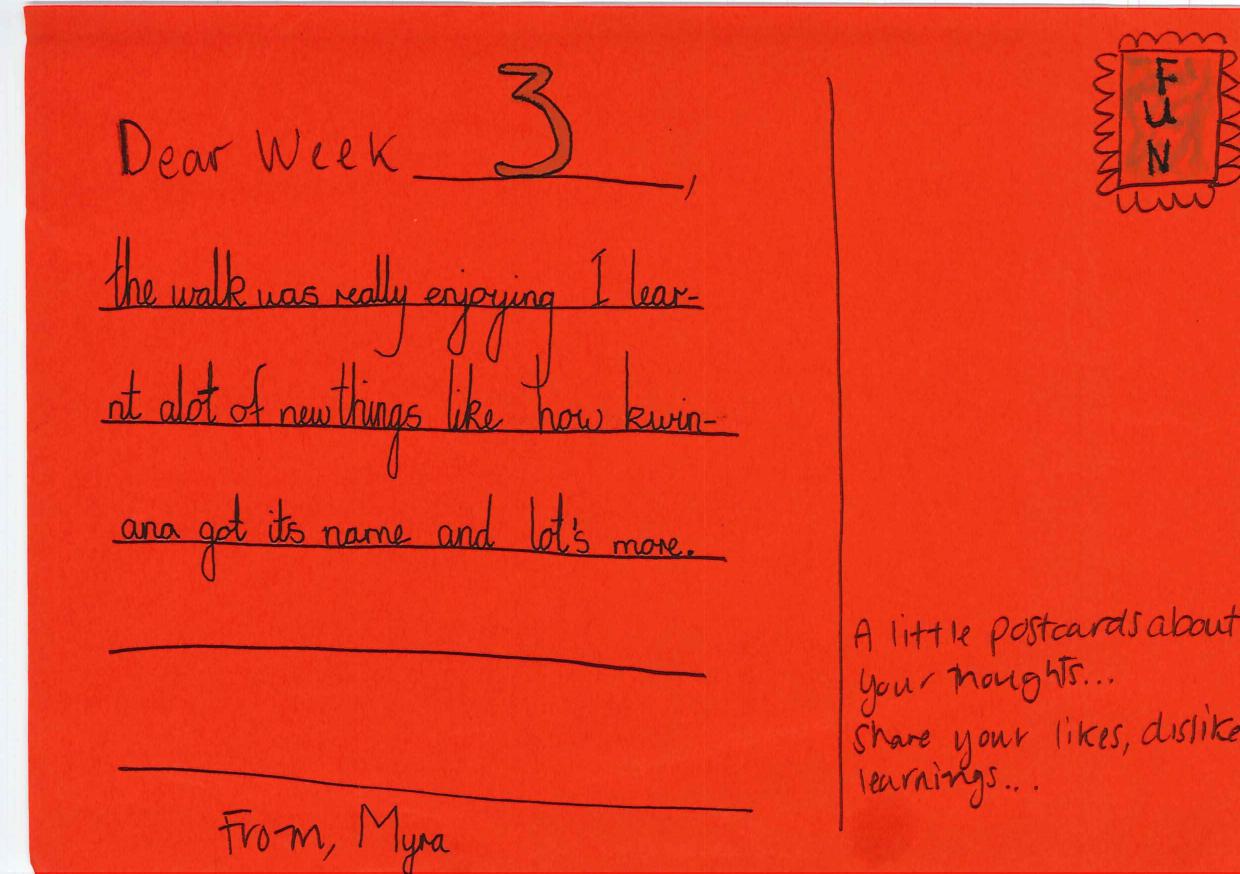 Dear Week 3,
the walk was really enjoying I lear-
nt alot of new things like how kwin-
ana got its name and lot's more.
From, Myra
F
U
N
A little postcards about
your thoughts...
Share your likes, dislike
learnings...